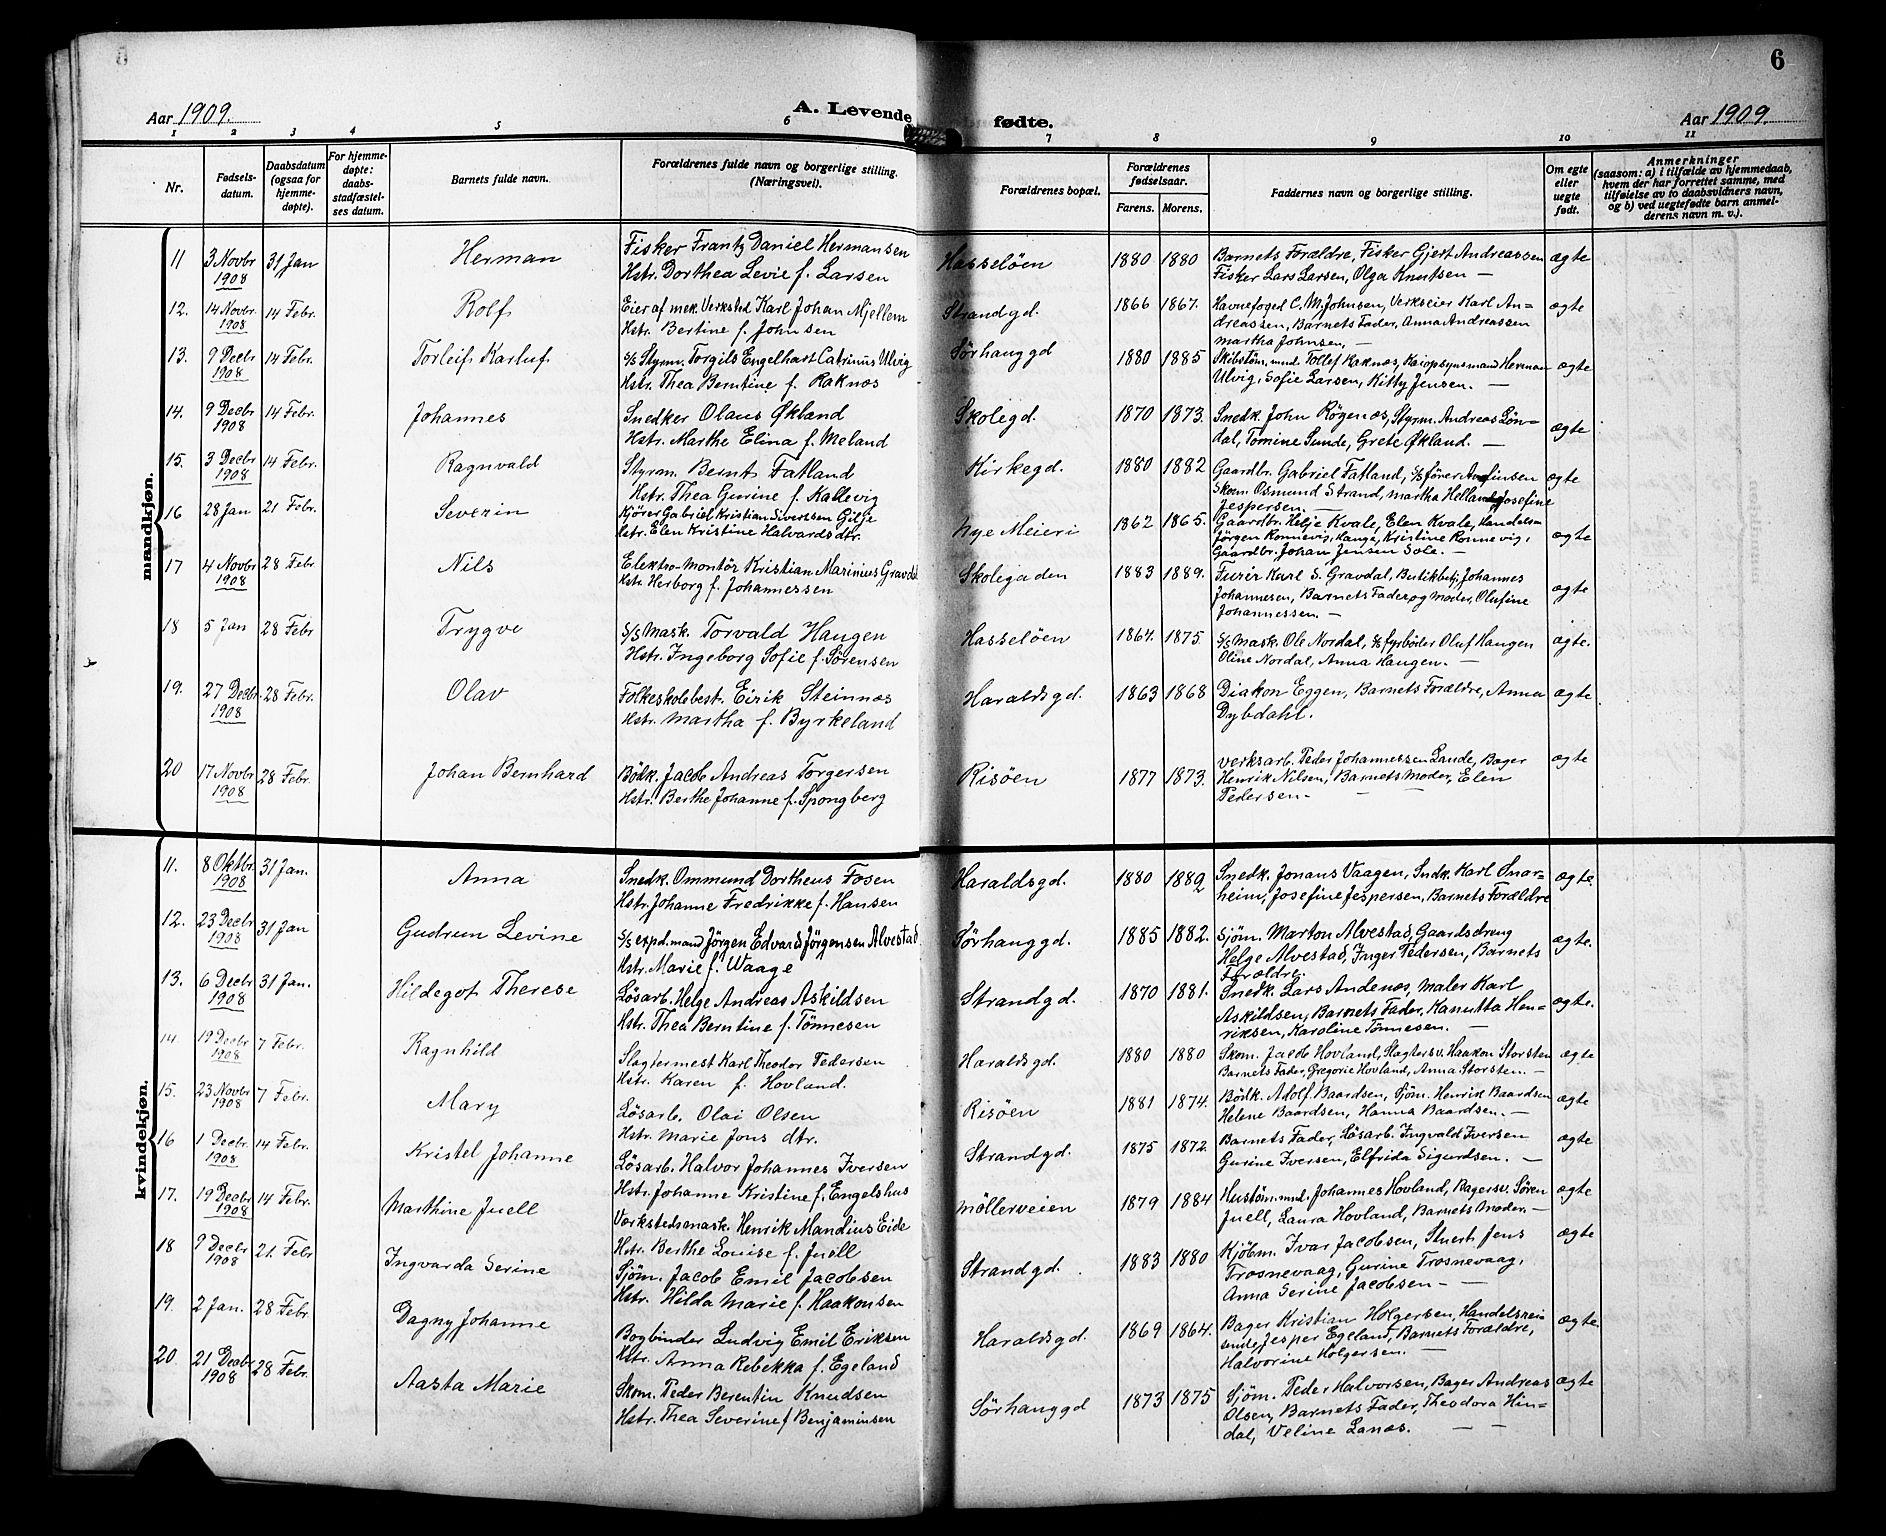 6
Aar 1909.
A. Levende fødte.
Aar 1909.
1 2 3 4 5 6 7 8 9 10 11
Nr.
Fødsels-
datum.
Daabsdatum
(ogsaa for
hjemme-
døpte).
For hjemme-
døpte:
daabs-
stadfæstel-
ses datum.
Barnets fulde navn.
Forældrenes fulde navn og borgerlige stilling.
(Næringsvei).
Forældrenes bopæl.
Forældrenes
fødselsaar.
Farens. Morens.
Faddernes navn og borgerlige stilling.
Om egte
eller
uegte
født.
Anmerkninger
(saasom: a) i tilfælde av hjemmedaab,
hvem der har forrettet samme, med
tilføielse av to daabsvidners navn,
og b) ved uegtefødte barn anmel-
derens navn m. v.).
mandkjøn.
11 3 Novbr 1908 31 Jan Herman
Fisker Frantz Daniel Hermansen
Hstr. Dorthea Levie f. Larsen
Hasseløen 1880 1880
Barnets Forældre, Fisker Gjert Andreassen
Fisker Lars Larsen, Olga Knutsen —
ægte
12. 14 Novbr. 1908 14 Febr. Rolf
Eier af mek. Verksted Karl Johan Mjellem
Hstr. Bertine f. Johnsen
Strandgd. 1866 1867.
Havnefoged C. M. Johnsen, Verkseier Karl An-
dreassen, Barnets Fader, Anna Andreassen
Martha Johnsen. —
ægte
13. 9 Decbr 1908 14 Febr. Torleif Karluf
S/S Styrm. Torgils Engelhart Catrinus Ulvig
Hstr. Thea Berntine f. Raknæs
Sørhauggd 1880 1885
Skibstøm.mnd. Tollef Raknæs, Kaiopsynsmand Herman
Ulvig, Sofie Larsen, Kitty Jensen. —
ægte
14. 9 Decbr 1908 14 Febr. Johannes
Snedker Olaus Økland
Hstr. Marthe Elina f. Meland
Skolegd. 1870 1873.
Snedk. John Røgenæs, Styrm. Andreas Løn-
dal, Tomine Sunde, Grete Økland. —
ægte
15. 3 Decbr 1908 14 Febr. Ragnvald
Styrm. Bernt Fatland
Hstr. Thea Gurine f. Kallevig
Kirkegd. 1880 1882
Gaardbr. Gabriel Fatland, S/S fører Amfinsen
Skom. Osmund Strand, Martha Helland, Josefine
Jespersen. —
ægte
16 28 Jan 21 Febr. Severin
Kjører Gabriel Kristian Sivertsen Gilje
Hstr. Elen Kristine Halvards dtr.
Nye Meieri 1862 1865.
Gaardbr. Helje Kvale, Elen Kvale, Handelsm
Jørgen Rønnevig, Hauge, Kristine Rønnevig,
Gaardbr. Johan Jensen Sole. —
ægte
17 4 Novbr 1908 28 Febr Nils
Elektro-Montør Kristian Marinius Gravdal
Hstr Herborg f. Johannessen
Skolegaden 1883 1889.
Furér Karl S. Gravdal, Butikbetj. Johannes
Johannesen, Barnets Fader og Moder, Olufine
Johannessen. —
ægte
18 5 Jan 28 Febr Trygve
S/S Mask. Torvald Haugen
Hstr. Ingeborg Sofie f. Sørensen
Hasseløen 1864. 1875
S/S Mask. Ole Nordal, S/S fyrbøder Oluf Haugen
Oline Nordal, Anna Haugen. —
ægte.
19. 27 Decbr. 1908 28 Febr. Olav
Folkeskolebest. Eirik Steinnæs
Hstr. Martha f. Byrkeland
Haraldsgd. 1863 1868
Diakon Eggen, Barnets Forældre, Anna
Dybdahl.
ægte
20 17 Novbr. 1908 28 Febr. Johan Bernhard
Bødk. Jacob Andreas Torgersen
Hstr. Berthe Johanne f. Spongberg
Risøen 1877 1873.
Verksarb. Peder Johannessen Lande, Bager
Henrik Nilsen, Barnets Moder, Elen
Pedersen. —
ægte
kvindekjøn.
11. 8 Oktbr. 1908 31 Jan. Anna
Snedk. Ommund Dortheus Fosen
Hstr. Johanne Fredrikke f. Hansen
Haraldsgd. 1880 1882
Snedk. Jonans Vaagen, Sndk. Karl Snar-
heim, Josefine Jespersen, Barnets Forældre
ægte.
12. 23 Decbr 1908 31 Jan Gudrun Levine
S/S exp.d.mand Jørgen Edvard Jørgensen Alvestad
Hstr. Marie f. Waage
Sørhauggd. 1885 1882.
Sjøm. Marton Alvestad, Gaardsdreng
Helge Alvestad, Inger Pedersen, Barnets
Forældre.
ægte.
13. 6 Decbr 1908 31 Jan. Hildegot Therese
Løsarb. Helge Andreas Askildsen
Hstr. Thea Berntine f. Tønnesen
Strandgd. 1870 1881.
Snedk. Lars Andenæs, Maler Karl
Askildsen, Barnets Fader, Kanutta Hen-
riksen, Karoline Tønnesen. —
ægte.
14. 19 Decbr 1908 7 Febr. Ragnhild
Slagtermest Karl Theodor Pedersen
Hstr. Karen f. Hovland.
Haraldsgd. 1880 1880
Skom. Jacob Hovland, Slagtersv. Haakon Storsten
Barnets Fader, Gregorie Hovland, Anna Storsten. —
ægte
15. 23 Novbr 1908 7 Febr. Mary
Løsarb. Olai Olsen
Hstr. Marie Jons dtr.
Risøen 1881 1874.
Bødk. Adolf Baardsen, Sjøm. Henrik Baardsen
Helene Baardsen, Hanna Baardsen. —
ægte
16 1 Decbr. 1908 14 Febr. Kristel Johanne
Løsarb. Halvor Johannes Iversen
Hstr. Johanne Kristine f. Engelshus
Strandgd. 1875 1872.
Barnets Fader, Løsarb. Ingvald Iversen
Gurine Iversen, Elfrida Sigurdsen. —
ægte
17. 19 Decbr 1908 14 Febr. Marthine Juell
Værkstedsmask. Henrik Mandius Eide
Hstr. Berthe Louise f. Juell
Møllerveien 1879 1884
Hustøm.mnd. Johannes Hovland, Bagersv. Søren
Juell, Laura Hovland, Barnets Moder. —
ægte
18 9 Decbr 1908 21. Febr Ingvarda Serine
Sjøm. Jacob Emil Jacobsen
Hstr. Hilda Marie f. Haakonsen
Strandgd. 1883 1880
Kjøbm. Ivar Jacobsen, Stuert Jens
Trosnevaag, Gurine Trosnevaag,
Anna Serine Jacobsen — —
ægte
19. 2 Jan. 28 Febr. Dagny Johanne
Bogbinder Ludvig Emil Eriksen
Hstr. Anna Rebekka f. Egeland
Haraldsgd. 1869 1864.
Bager Kristian Holgersen, Handelsrei-
sende Jesper Egeland, Barnets Forældre,
Halvorine Holgersen. —
ægte.
20 21 Decbr 1908 28 Febr. Aasta Marie
Skom. Peder Berentin Knudsen
Hstr. Thea Severine f Benjaminsen
Sørhauggd 1873 1875
Sjøm. Peder Halvorsen, Bager Andreas
Olsen, Barnets Fader, Theodora Hin-
dal, Veline Lanæs. — —
ægte